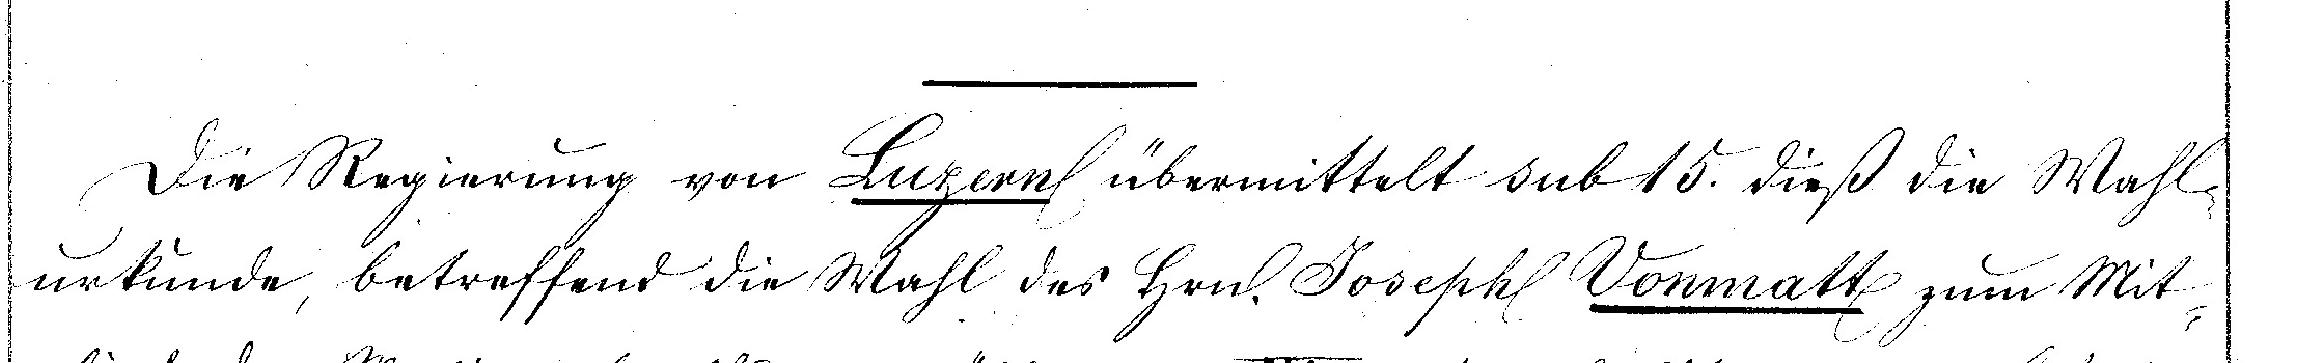 Die Regierung von Luzern übermittelt sub 15. dieß die Wahl-
urkunde, betreffend die Wahl des Hrn. Joseph Vonmatt zum Mit-